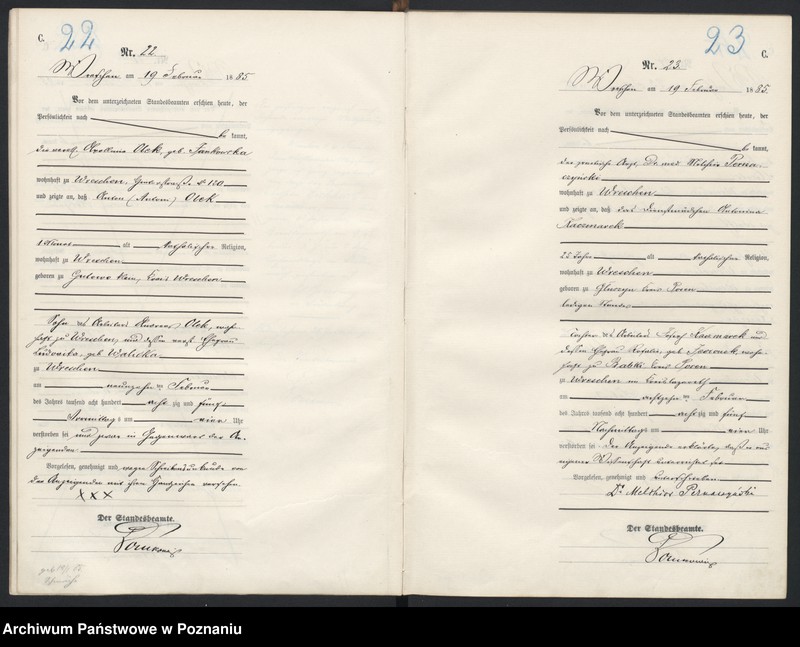 C. 22
Nr. 22.
Wreschen am 19 Februar 1885.
Vor dem unterzeichneten Standesbeamten erschien heute, der
Persönlichkeit nach
be kannt,
die verehl. Apollonia Olek, geb. Jankowska
wohnhaft zu Wreschen, № 120
und zeigte an, daß Anton (Antoni) Olek
alt katholischer Religion,
wohnhaft zu Wreschen
geboren zu Gutowo Kreis Wreschen
Sohn des Arbeiters Olek, wohn-
haft zu Wreschen, und dessen Ehefrau
geb. Walicka
zu Wreschen
am neunzehn ten Februar
des Jahres tausend acht hundert acht zig und fünf
Vormittags um vier Uhr
verstorben sei und zwar in Gegenwart der An-
zeigenden
Vorgelesen, genehmigt und wegen Schreibensunkunde von
der Anzeigenden mit ihrem Handzeichen versehen.
XXX
Der Standesbeamte.
23 C.
Nr. 23.
Wreschen am 19 Februar 1885.
Vor dem unterzeichneten Standesbeamten erschien heute, der
Persönlichkeit nach
be kannt,
der praktische Arzt, Dr. med.
wohnhaft zu Wreschen
und zeigte an, daß das Dienstmädchen Antonina
Kaczmarek
25 Jahr alt katholischer Religion,
wohnhaft zu Wreschen
geboren zu Kreis Posen
ledigen Standes
Tochter des Arbeiters Josef Kaczmarek und
dessen Ehefrau geb. wohn-
haft zu Kreis Posen
zu Wreschen im
am achtzehn ten Februar
des Jahres tausend acht hundert acht zig und fünf
Nachmittags um vier Uhr
verstorben sei. Der Anzeigende erklärte, daß er aus
eigener Wissenschaft unterrichtet sei
Vorgelesen, genehmigt und unterschrieben
Dr.
Der Standesbeamte.
Archiwum Państwowe w Poznaniu